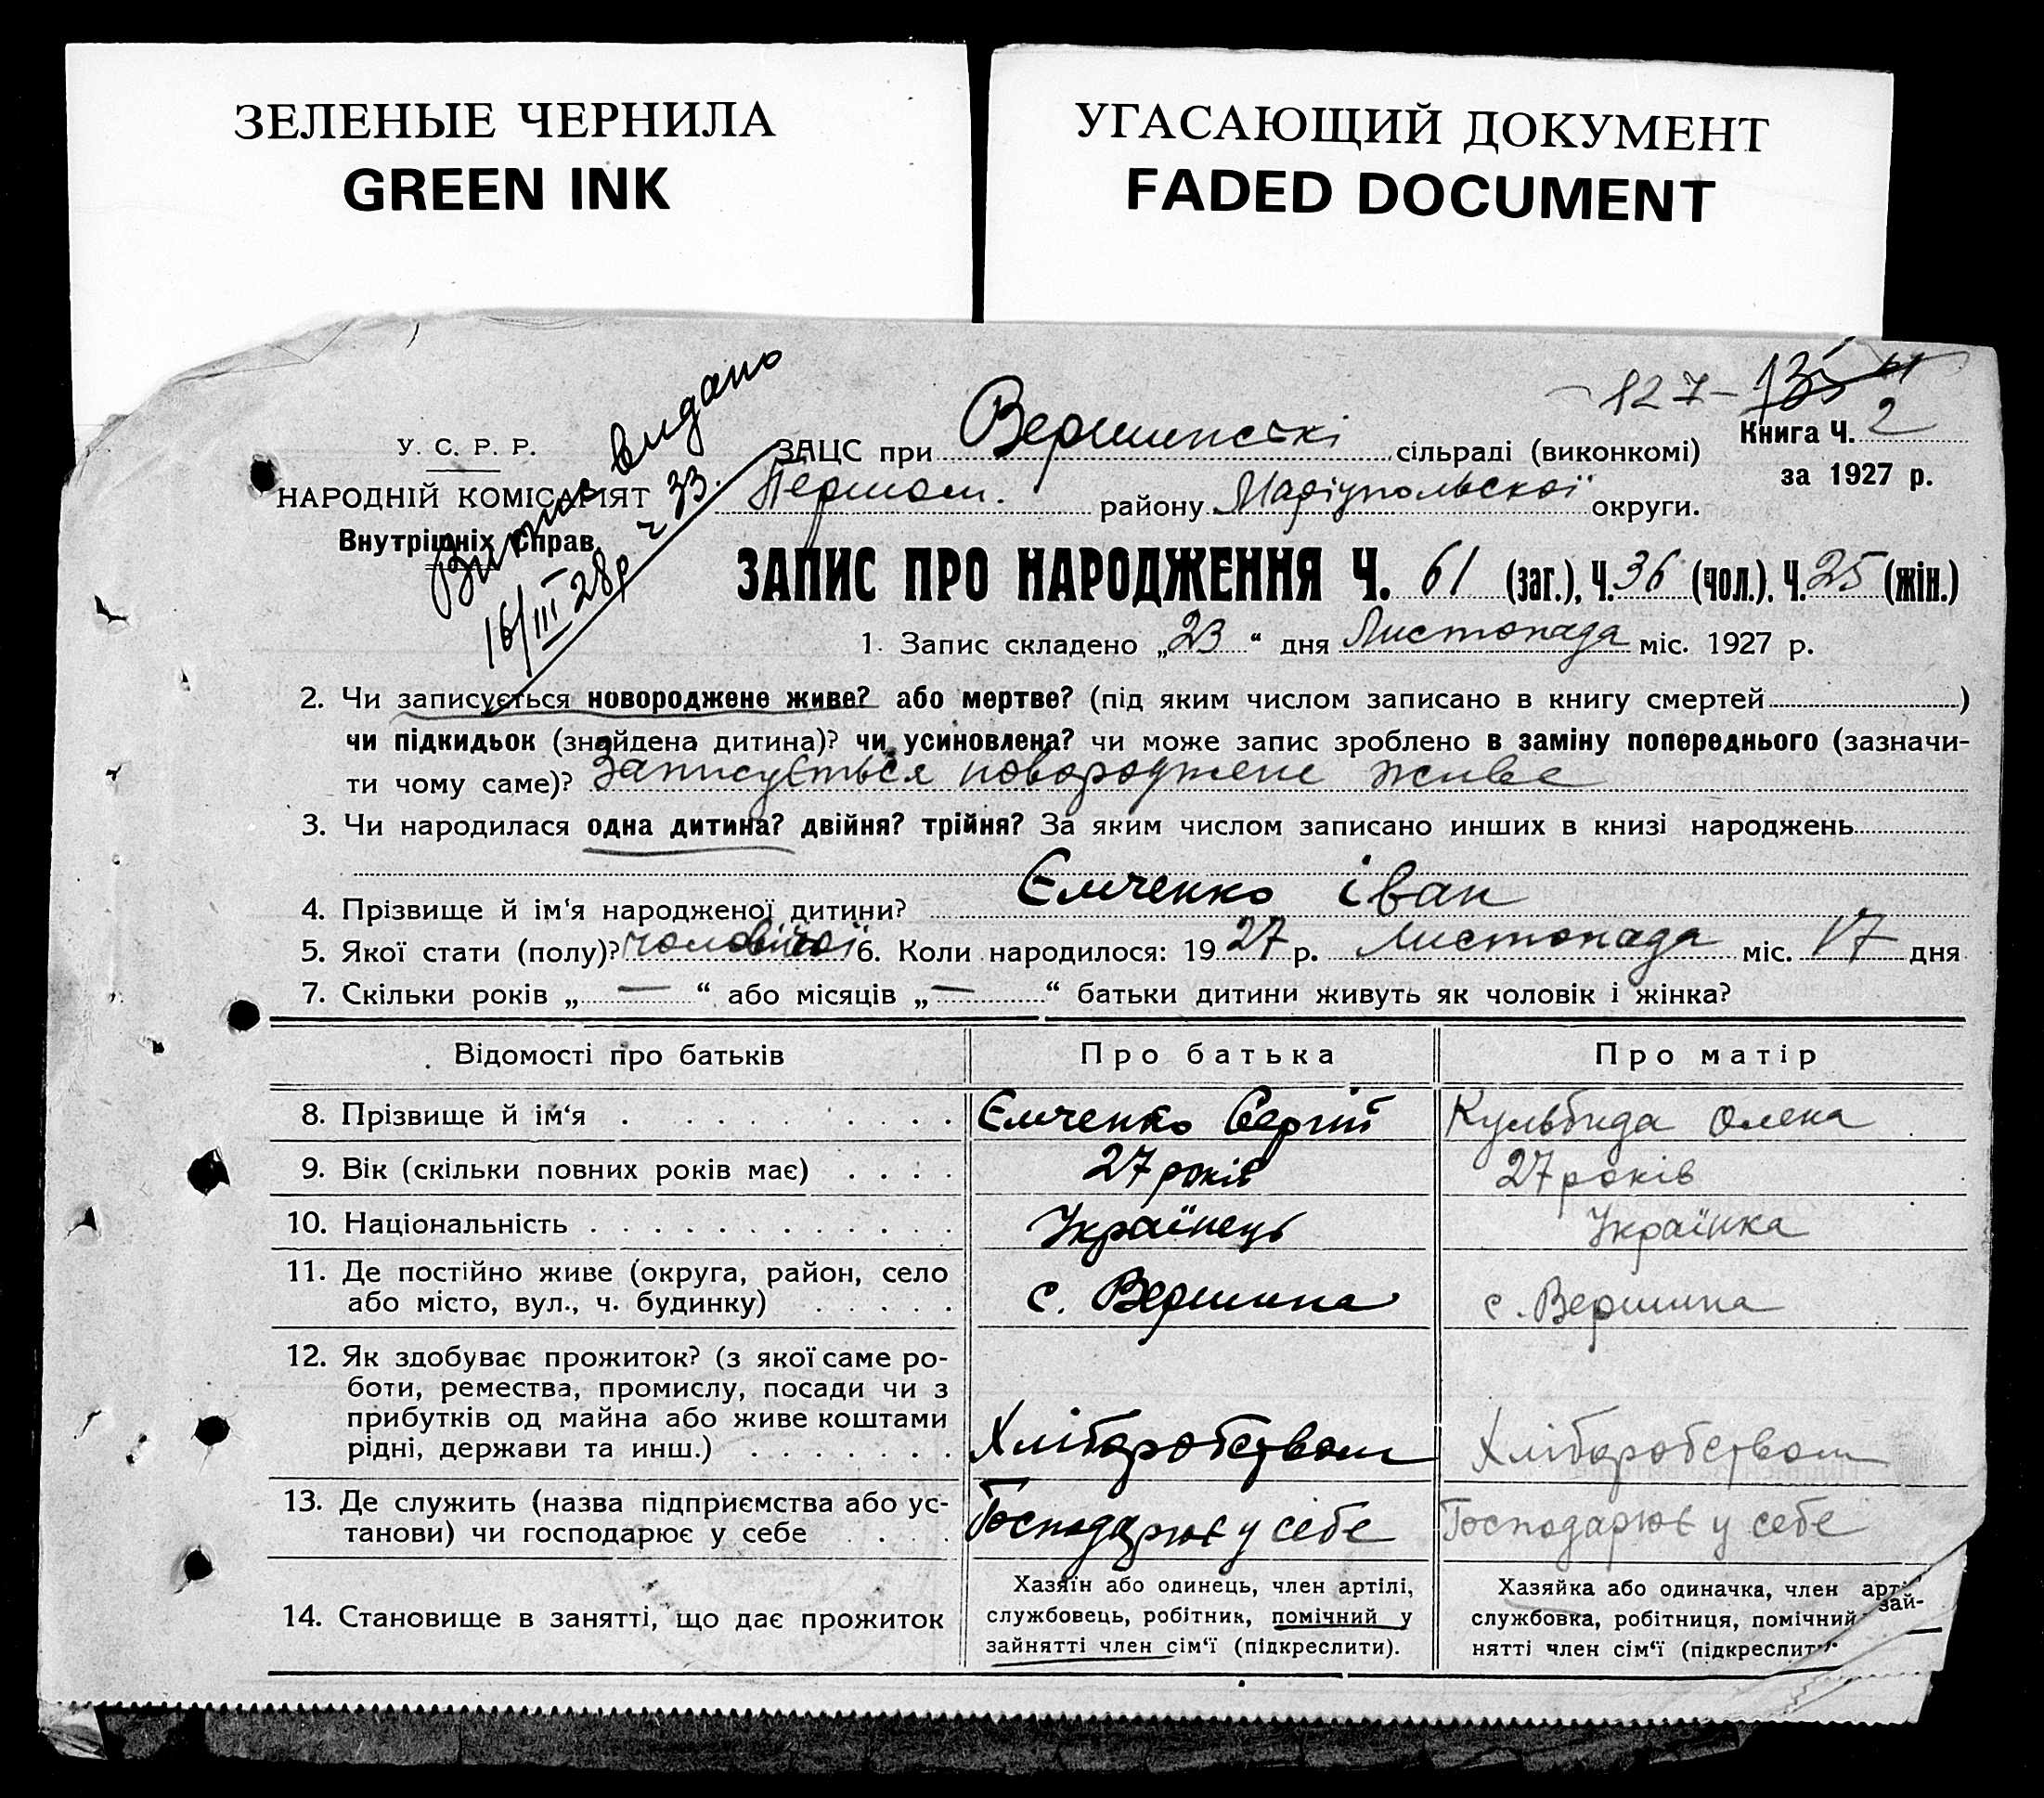 ЗЕЛЕНЫЕ ЧЕРНИЛА
GREEN INK
УГАСАЮЩИЙ ДОКУМЕНТ
FADED DOCUMENT
127-
Книга Ч. 2
за 1927 р.
У. С. Р. Р.
НАРОДНІЙ КОМІСАРІЯТ
Внутрішніх Справ
Випис видано
16/III 28р ч 33.
ЗАЦС при Вершинській сільраді (виконкомі)
району Маріупольської округи.
ЗАПИС ПРО НАРОДЖЕННЯ Ч. 61 (заг.), Ч. 36 (чол.), Ч. 25 (жін.)
1. Запис складено „23“ дня Листопада міс. 1927 р.
2. Чи записується новороджене живе? або мертве? (під яким числом записано в книгу смертей )
чи підкидьок (знайдена дитина)? чи усиновлена? чи може запис зроблено в заміну попереднього (зазначи-
ти чому саме)? Записується новороджене живе
3. Чи народилася одна дитина? двійня? трійня? За яким числом записано инших в книзі народжень
4. Прізвище й ім‘я народженої дитини? Ємченко Іван
5. Якої стати (полу)? чоловічої 6. Коли народилося: 1927 р. Листопада міс. 17 дня
7. Скільки років „ — “ або місяців „ — “ батьки дитини живуть як чоловік і жінка?
Відомості про батьків Про батька Про матір
8. Прізвище й ім‘я Ємченко Сергій Кульбида Олена
9. Вік (скільки повних років має) 27 років 27 років
10. Національність Українець Українка
11. Де постійно живе (округа, район, село
або місто, вул., ч. будинку) с. Вершина с. Вершина
12. Як здобуває прожиток? (з якої саме ро-
боти, ремества, промислу, посади чи з
прибутків од майна або живе коштами
рідні, держави та инш.) Хліборобством Хліборобством
13. Де служить (назва підприємства або ус-
танови) чи господарює у себе Господарює у себе Господарює у себе
14. Становище в занятті, що дає прожиток
Хазяїн або одинець, член артілі,
службовець, робітник, помічний у
зайнятті член сім‘ї (підкреслити).
Хазяйка або одиначка, член
службовка, робітниця, помічний зай-
нятті член сім‘ї